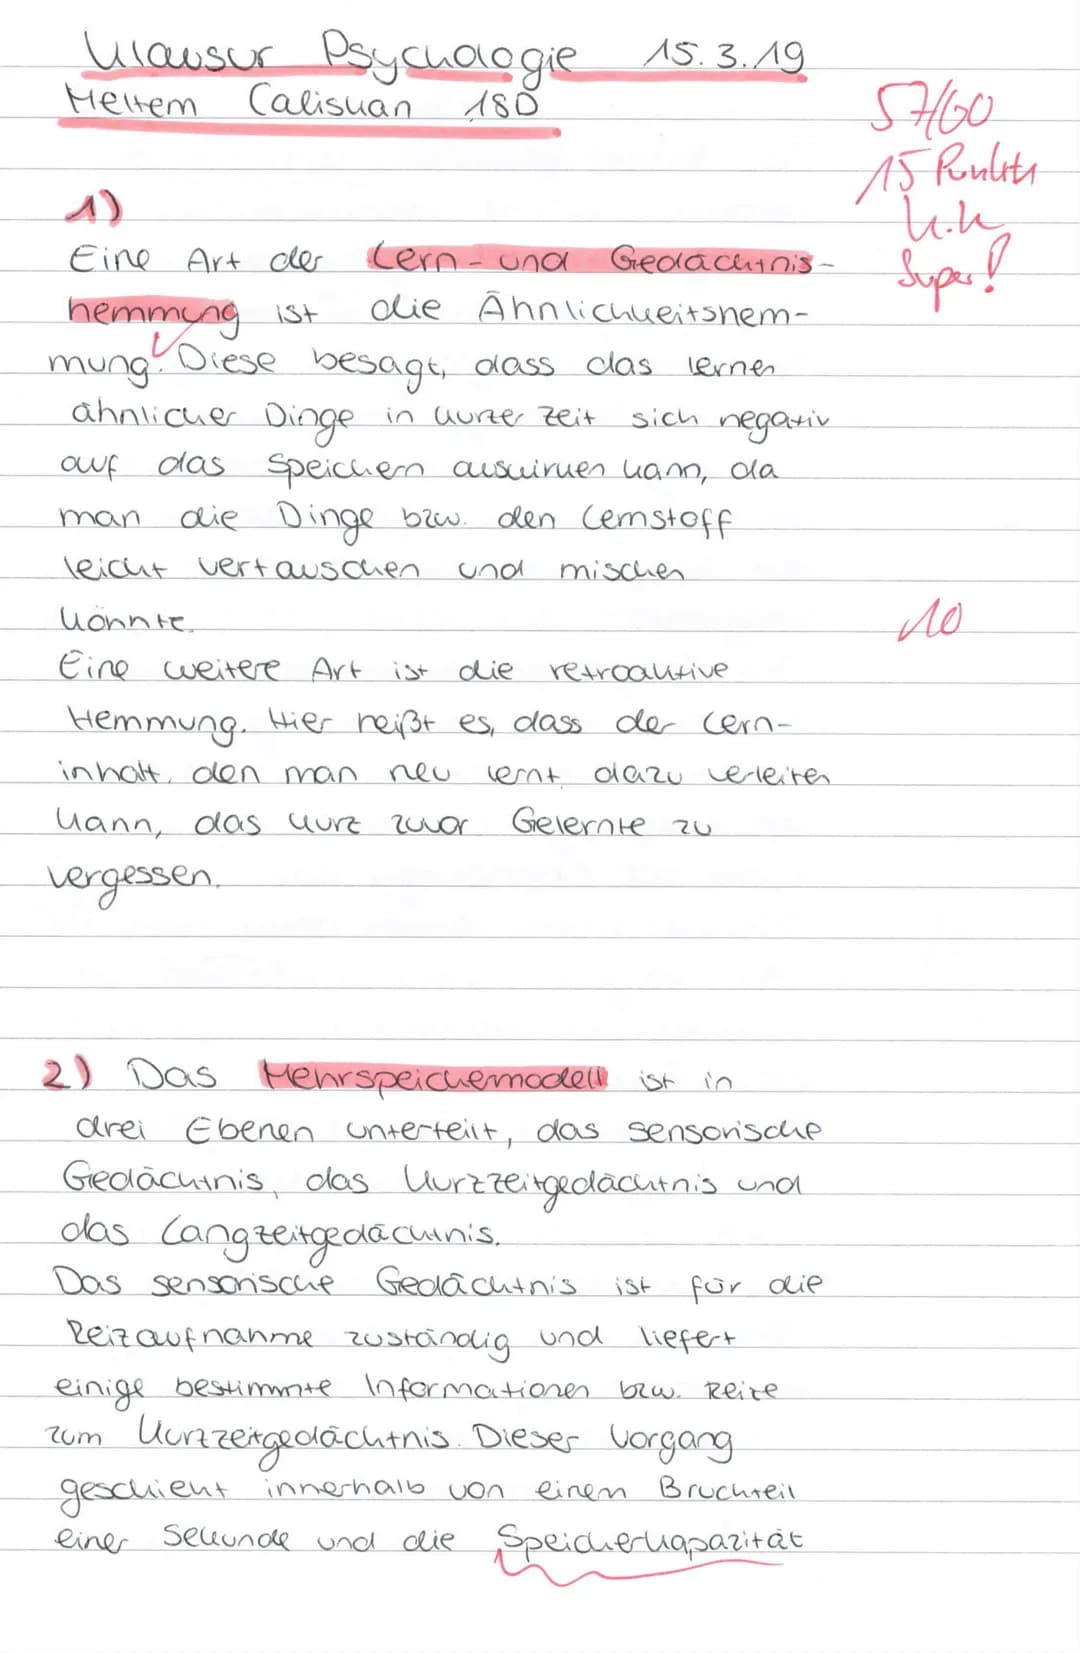 Klausur Psychologie 15.3.19
Meltem Caliskan 18D
57/60
15 Punkte
Super!
1)
Eine Art der Lern- und Gedächtnis-
hemmung ist die Ähnlichkeitshem-
mung. Diese besagt, dass das lernen
ähnlicher Dinge in kurzer Zeit sich negativ
auf das Speichern auswirken kann, da
man die Dinge bzw. den Lernstoff
leicht vertauschen und mischen
könnte.
10
Eine weitere Art ist die retroaktive
Hemmung. Hier heißt es, dass der Lern-
inhalt, den man neu lernt, dazu verleiten
kann, das kurz zuvor Gelernte zu
vergessen.
2) Das Mehrspeichermodell ist in
drei Ebenen unterteilt, das sensorische
Gedächtnis, das Kurzzeitgedächtnis und
das Langzeitgedächtnis.
Das sensorische Gedächtnis ist für die
Reizaufnahme zuständig und liefert
einige bestimmte Informationen bzw. Reize
zum Kurzzeitgedächtnis. Dieser Vorgang
geschieht innerhalb von einem Bruchteil
einer Sekunde und die Speicherkapazität